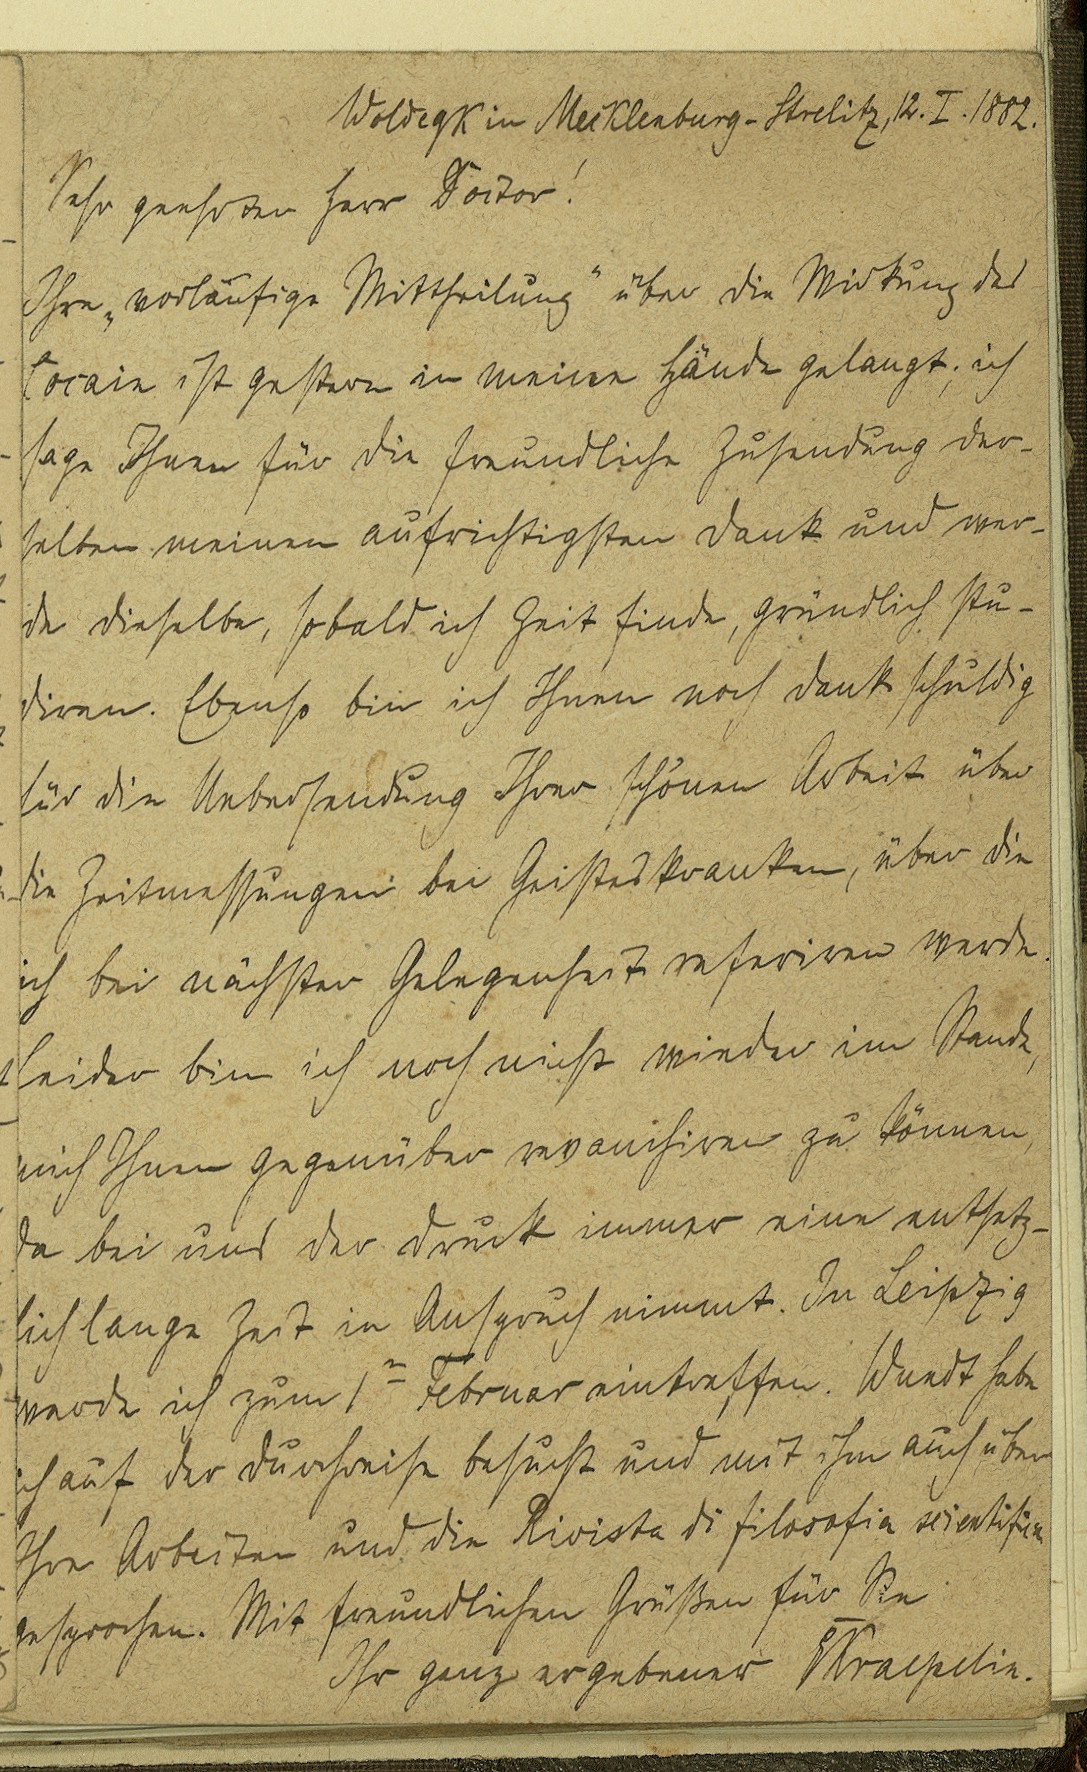 Woldegk in Mecklenburg-Strelitz, 12. I. 1882.
Sehr geehrter Herr Doctor!
Ihre „vorläufige Mittheilung“ über die Wirkung des
Cocain ist gestern in meine Hände gelangt; ich
sage Ihnen für die freundliche Zusendung der-
selben meinen aufrichtigsten Dank und wer-
de dieselbe, sobald ich Zeit finde, gründlich stu-
diren. Ebenso bin ich Ihnen noch Dank schuldig
für die Uebersendung Ihrer schönen Arbeit über
die Zeitmessungen bei Geisteskranken, über die
ich bei nächster Gelegenheit referiren werde.
Leider bin ich noch nicht wieder im Stande,
mich Ihnen gegenüber revanchiren zu können,
da bei uns der Druck immer eine entsetz-
lich lange Zeit in Anspruch nimmt. In Leipzig
werde ich zum 1n Februar eintreffen. Wundt habe
ich auf der Durchreise besucht und mit ihm auch über
Ihre Arbeiten und die Rivista di filosofia scientifica
gesprochen. Mit freundlichen Grüßen für Sie
Ihr ganz ergebener EKraepelin.